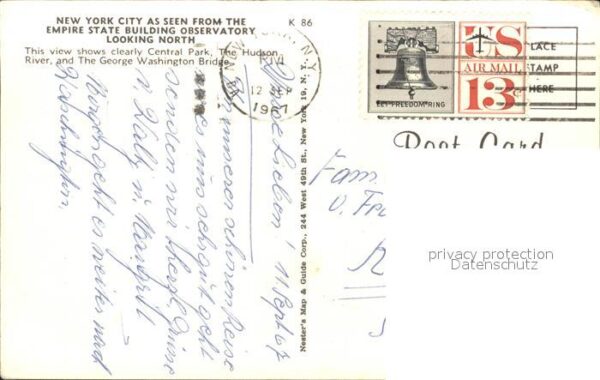 NEW YORK CITY AS SEEN FROM THE
EMPIRE STATE BUILDING OBSERVATORY
LOOKING NORTH
K 86
This view shows clearly Central Park, The Hudson
River, and The George Washington Bridge.
N.Y.
PM
12 SEP
1967
LET FREEDOM RING
US
AIR MAIL
13c
PLACE
STAMP
HERE
Post Card
Nester's Map & Guide Corp., 244 West 49th St., New York 19, N. Y.
Lieben! 11 Sept 67
unserer schönen Reise
uns sehr gut geht
senden wir herzl. Grüsse
geht es weiter nach
Washington.
Fam
privacy protection
Datenschutz